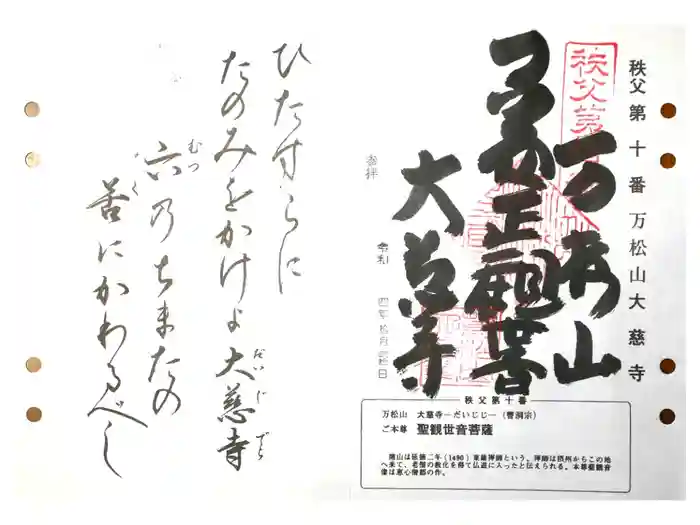 秩父第十番万松山大慈寺
万松山
聖観音
大慈寺
参拝
令和
四年
月
日
秩父第
ひたすらに
たのみをかけよ大慈寺
だいじでら
六の
むつ
ちまたの
苦にかわるべし
く
秩父第十番
万松山 大慈寺―だいじじ―(曹洞宗)
ご本尊 聖観世音菩薩
開山は延徳二年(1490)東雄禅師という。禅師は摂州からこの地
へ来て、老僧の教化を得て仏道に入ったと伝えられる。本尊聖観音
像は恵心僧都の作。